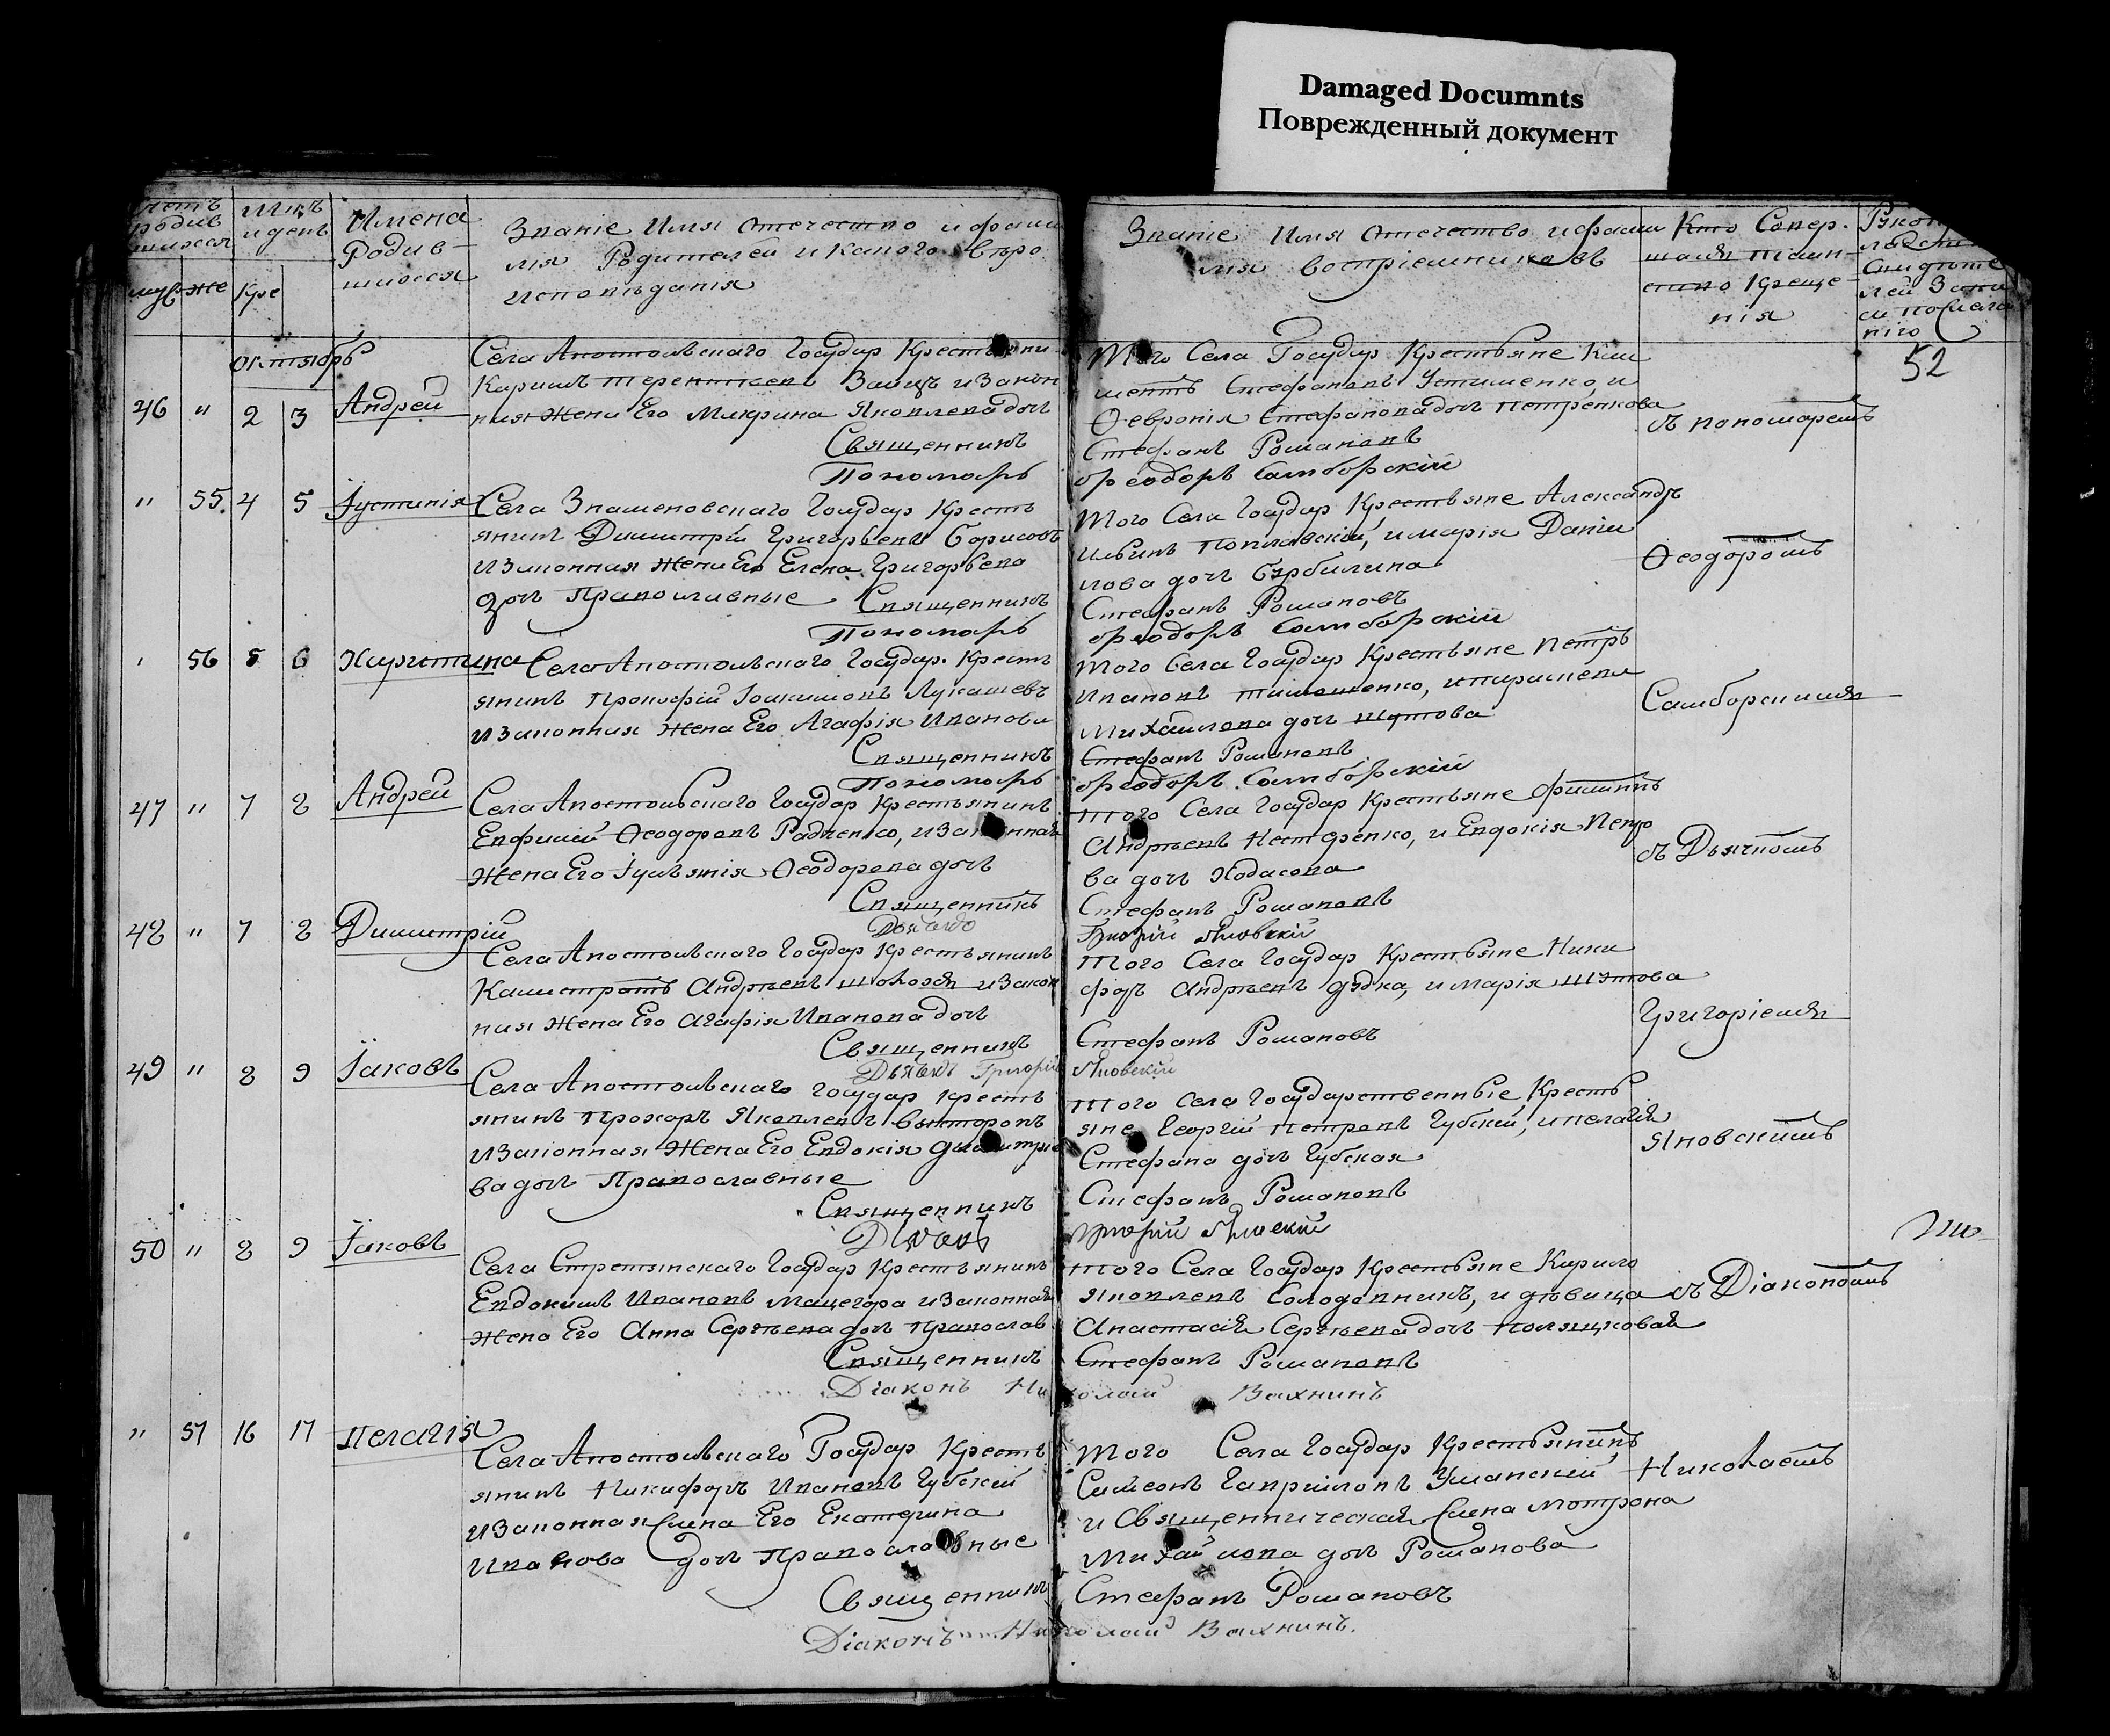 Damaged Documnts
Поврежденный документ
Счетъ родив шихся
Мцъ и день
Имена Родив- шихся
Званіе Имя Отечество и фами
лія Родителей и какого Веро
исповѣданія
Званіе Имя Отечество и фами
лія воспріемниковъ
Кто Совер- шалъ таин- ство Креще- нія
муж же Кре
Октябрь
52
46 " 2 3 Андрей
Села Апостольскаго Государ Крестьяни
Карпъ Терентіевъ Заецъ и Закон
ная жена Его Макрина Яковлева доч
Священникъ
Пономарь
Того Села Государ Крестьяне Кли
ментъ Стефановъ Устименко, и
Ѳевронія Стефанова доч Петренкова
Стефанъ Романовъ
Ѳеодоръ Самборскій
съ пономаремъ
" 55. 4 5 Іустинія
Села Знаменовскаго Государ Кресть
янинъ Димитрій Григорьевъ Борисовъ
и Законная жена Его Елена Григорьева
доч Православные
Священникъ
Пономарь
Того Села Государ Крестьяне Александръ
Ильинъ Поплавскій, и марія Даніи
лова доч Бурбилина
Стефанъ Романовъ
Ѳеодоръ Самборскій
Ѳеодоромъ
" 56 5 6 Христина
Села Апостольскаго Государ. Кресть
янинъ Прокофій Іоакимовъ Лукашевъ
и Законная жена Его Агафія Иванова
Священникъ
Пономарь
Того Села Государ Крестьяне Петръ
Ивановъ Тимошенко, и парасцева
Михайлова доч Шутова
Стефанъ Романовъ
Ѳеодоръ Самборскій
Самборскимъ
47 " 7 8 Андрей
Села Апостольскаго Государ Крестьянинъ
Евфимій Ѳеодоровъ Радченко, и Законная
жена Его Іуліянія Ѳеодорова доч
Священникъ
Дьячокъ
Того Села Государ Крестьяне Филиппъ
Андрѣевъ Нестеренко, и Евдокія Петро
ва доч Ходасова
Стефанъ Романовъ
Григорій Яновскій
съ Дьячкомъ
48 " 7 8 Димитрій
Села Апостольскаго Государ Крестьянинъ
Калистратъ Андрѣевъ и Закон
ная жена Его Агафія Иванова доч
Священникъ
Дьячокъ Григорій
Того Села Государ Крестьяне Ники
форъ Андрѣевъ дядка, и марія Шутова
Стефанъ Романовъ
Яновскій
Григоріемъ
49 " 8 9 Іаковъ
Села Апостольскаго Государ Кресть
янинъ Прохоръ Яковлевъ Викторовъ
и Законная жена Его Евдокія димитріе
ва доч Православные
Священникъ
Дьячокъ
Того Села Государственные Кресть
яне, Георгій Петровъ Губскій, и пелагія
Стефана доч Губская
Стефанъ Романовъ
Григорій Яновскій
Яновскимъ
50 " 8 9 Іаковъ
Села Стретинскаго Государ Крестьянинъ
Евдокимъ Ивановъ Мацегора и Законная
жена Его Анна Сергѣева доч православ
Священникъ
Діаконъ Николай Вахнинъ
Того Села Государ Крестьяне Кирило
Яковлевъ Солодовникъ, и дѣвица
Анастасія Сергѣева доч Полящковая
Стефанъ Романовъ
съ Діакономъ
" 57 16 17 Пелагія
Села Апостольскаго Государ Кресть
янинъ Никифоръ Ивановъ Губскій
и Законная Жена Его Екатерина
Иванова доч Православные
Священникъ
Діаконъ Николай Вахнинъ.
Того Села Государ Крестьянинъ
Симеонъ Гавріиловъ Уманскій
и Священническая Жена Мотрона
Михайлова доч Романова
Стефанъ Романовъ
Николаемъ